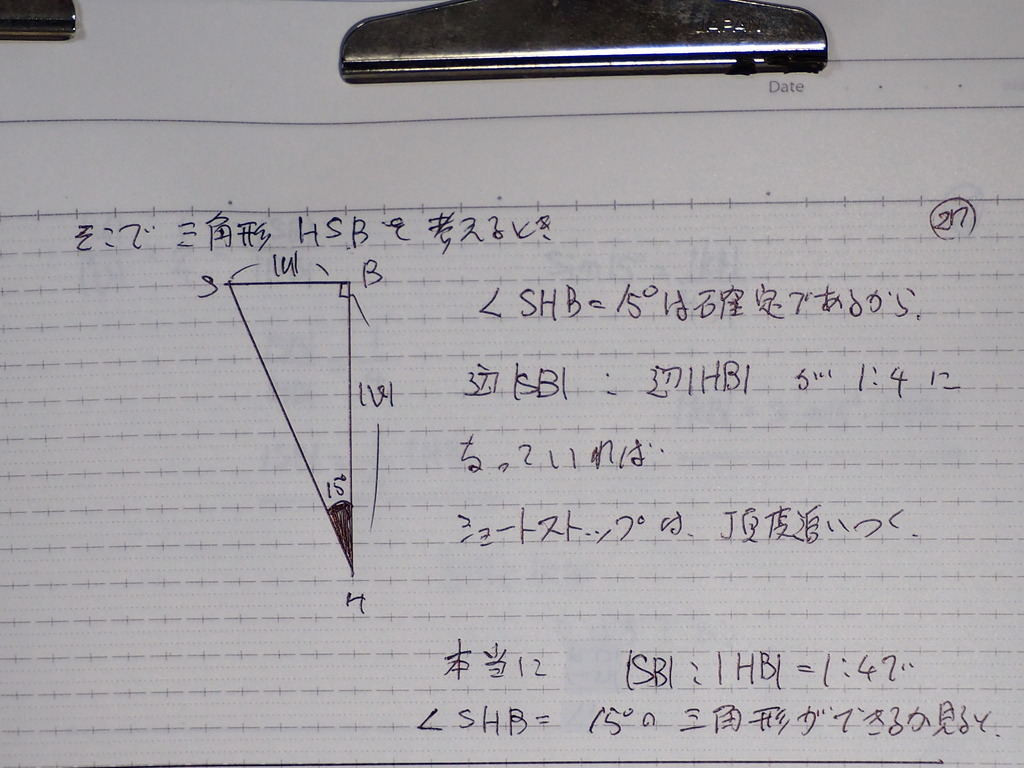 JAPAN
Date
そこで 三角形 HSBを考えるとき
217
S
|u|
B
∠SHB=15°は確定であるから、
|v|
辺|SB| : 辺|HB| が 1:4に
なっていれば
15°
ショートストップは、丁度追いつく。
H
本当に |SB| : |HB| = 1:4で
∠SHB= 15°の 三角形ができるか見ると、